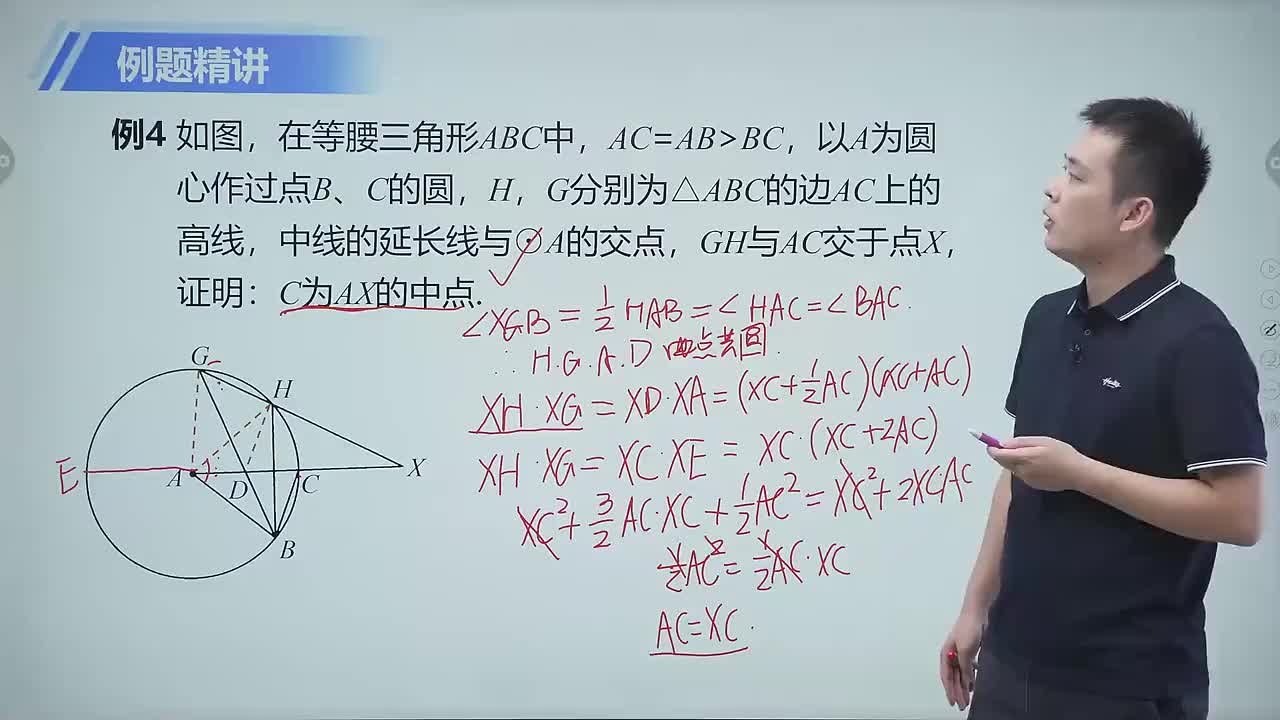 例题精讲
例4 如图，在等腰三角形ABC中，AC=AB>BC，以A为圆
心作过点B、C的圆，H，G分别为△ABC的边AC上的
高线，中线的延长线与⊙A的交点，GH与AC交于点X，
证明：C为AX的中点.
∠XGB = 1/2 HAB = ∠HAC = ∠BAC.
∴ H.G.A.D 四点共圆.
XH·XG = XD·XA = (XC+1/2AC)(XC+AC)
XH·XG = XC·XE = XC·(XC+2AC)
XC²+3/2AC·XC+1/2AC²=XC²+2XCAC
1/2AC²=1/2AC·XC
AC=XC.
G
H
E
A
D
C
X
B